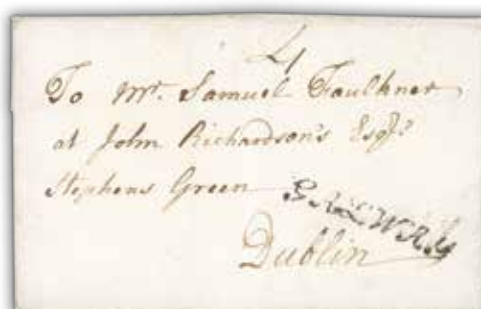 4
To Mr. Samuel Faulkner
at John Richardson's Esqr.
Stephens Green
GALWAY
Dublin